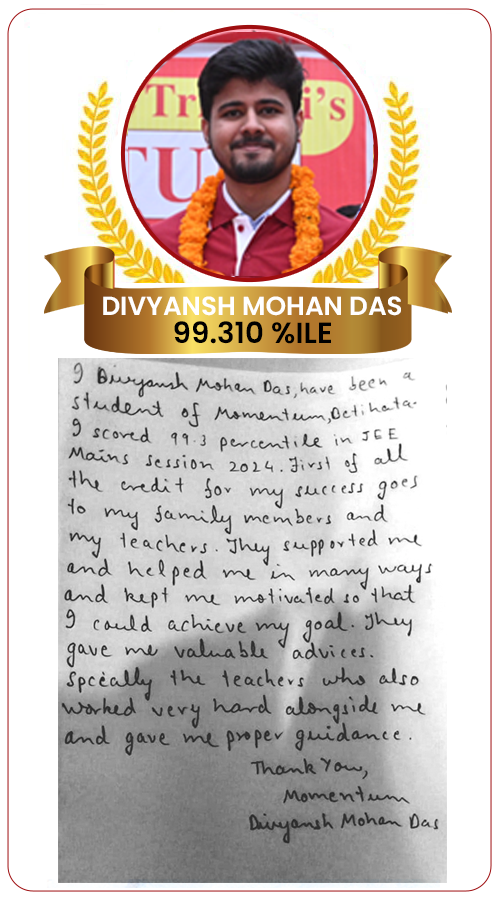 Tr i's
TU
DIVYANSH MOHAN DAS
99.310 %ILE
I Divyansh Mohan Das, have been a
student of Momentum, Betihata.
I scored 99.3 percentile in JEE
Mains session 2024. First of all
the credit for my success goes
to my family members and
my teachers. They supported me
and helped me in many ways
and kept me motivated so that
I could achieve my goal. They
gave me valuable advices.
Specially the teachers who also
worked very hard alongside me
and gave me proper guidance.
Thank You,
Momentum
Divyansh Mohan Das